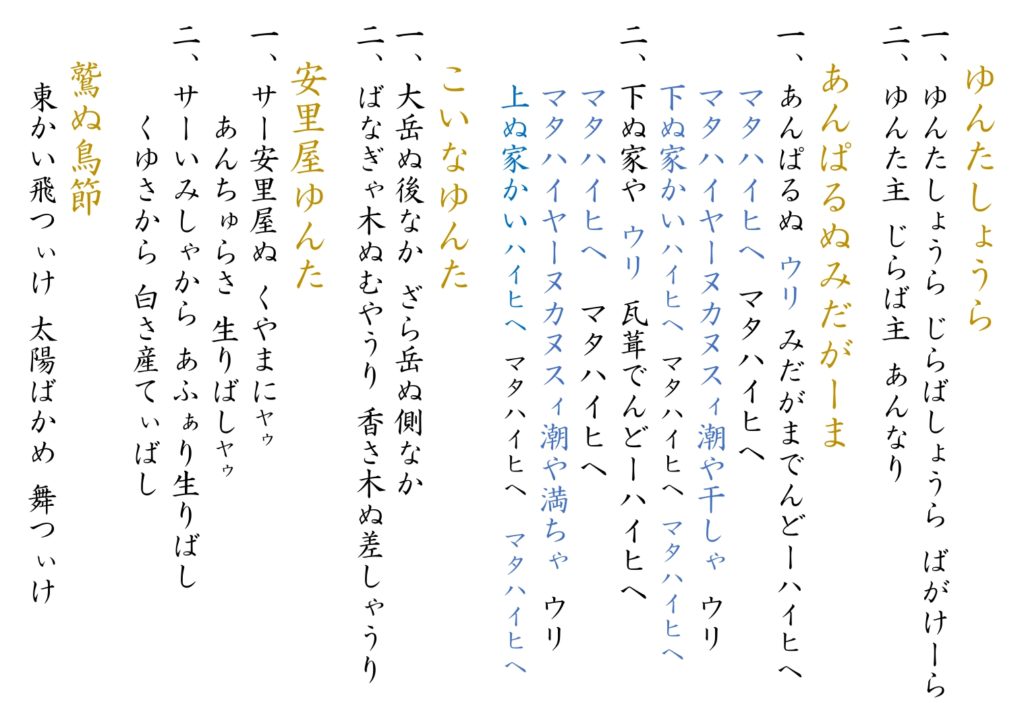 ゆんたしょうら
一、ゆんたしょうら じらばしょうら ばがけーら
二、ゆんた主 じらば主 あんなり
あんぱるぬみだがーま
一、あんぱるぬ ウリ みだがまでんどーハイヒヘ
マタハイヒヘ マタハイヒヘ
マタハイヤーヌカヌスィ潮や干しゃ ウリ
下ぬ家かいハイヒヘ マタハイヒヘ マタハイヒヘ
二、下ぬ家や ウリ 瓦葺でんどーハイヒヘ
マタハイヒヘ マタハイヒヘ
マタハイヤーヌカヌスィ潮や満ちゃ ウリ
上ぬ家かいハイヒヘ マタハイヒヘ マタハイヒヘ
こいなゆんた
一、大岳ぬ後なか ざら岳ぬ側なか
二、ばなぎゃ木ぬむやうり 香さ木ぬ差しゃうり
安里屋ゆんた
一、サー安里屋ぬ くやまにヤゥ
あんちゅらさ 生りばしヤゥ
二、サーいみしゃから あふぁり生りばし
くゆさから 白さ産てぃばし
鷲ぬ鳥節
東かい飛つぃけ 太陽ばかめ 舞つぃけ